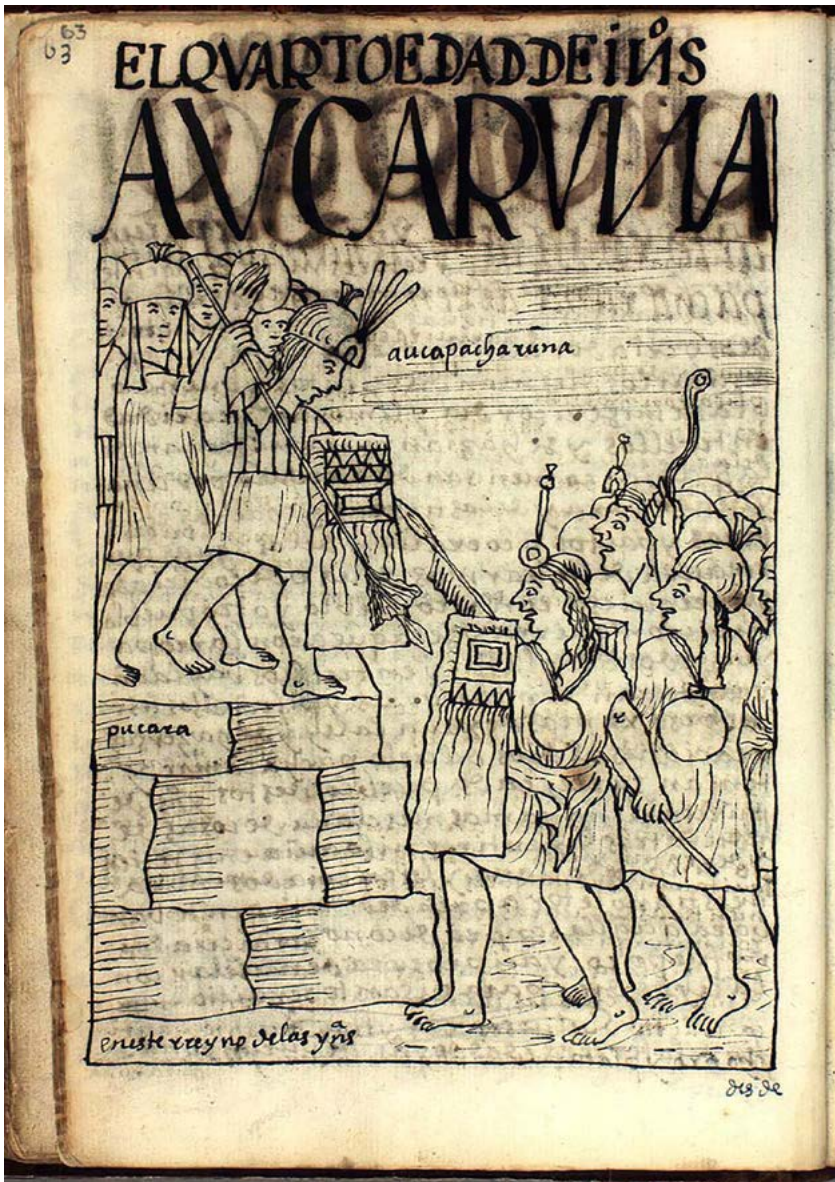 63
63
EL QVARTO EDAD DE INºS
AVCA RVNA
aucapacha runa
pucara
en este rreyno de las ynªs
des de